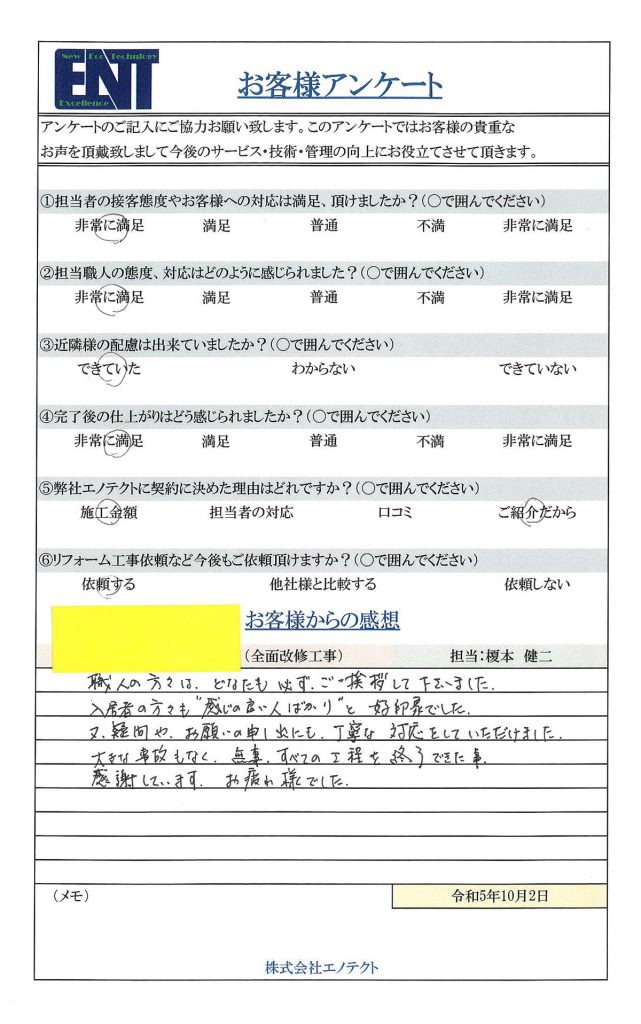 New Eco Technology
ENT
Excellence
お客様アンケート
アンケートのご記入にご協力お願い致します。このアンケートではお客様の貴重な
お声を頂戴致しまして今後のサービス・技術・管理の向上にお役立てさせて頂きます。
①担当者の接客態度やお客様への対応は満足、頂けましたか？(〇で囲んでください)
非常に満足 満足 普通 不満 非常に満足
②担当職人の態度、対応はどのように感じられました？(〇で囲んでください)
非常に満足 満足 普通 不満 非常に満足
③近隣様の配慮は出来ていましたか？(〇で囲んでください)
できていた わからない できていない
④完了後の仕上がりはどう感じられましたか？(〇で囲んでください)
非常に満足 満足 普通 不満 非常に満足
⑤弊社エノテクトに契約に決めた理由はどれですか？(〇で囲んでください)
施工金額 担当者の対応 口コミ ご紹介だから
⑥リフォーム工事依頼など今後もご依頼頂けますか？(〇で囲んでください)
依頼する 他社様と比較する 依頼しない
お客様からの感想
(全面改修工事) 担当:榎本 健二
職人の方々は、どなたも必ず、ご一挨拶して下さいました。
入居者の方々も"感じの良い人ばかり"と好印象でした。
又、疑問や、お願いの申し出にも、丁寧な対応をしていただけました。
大きな事故もなく、無事、すべての工程を終了できた事、
感謝しています。お疲れ様でした。
(メモ) 令和5年10月2日
株式会社エノテクト